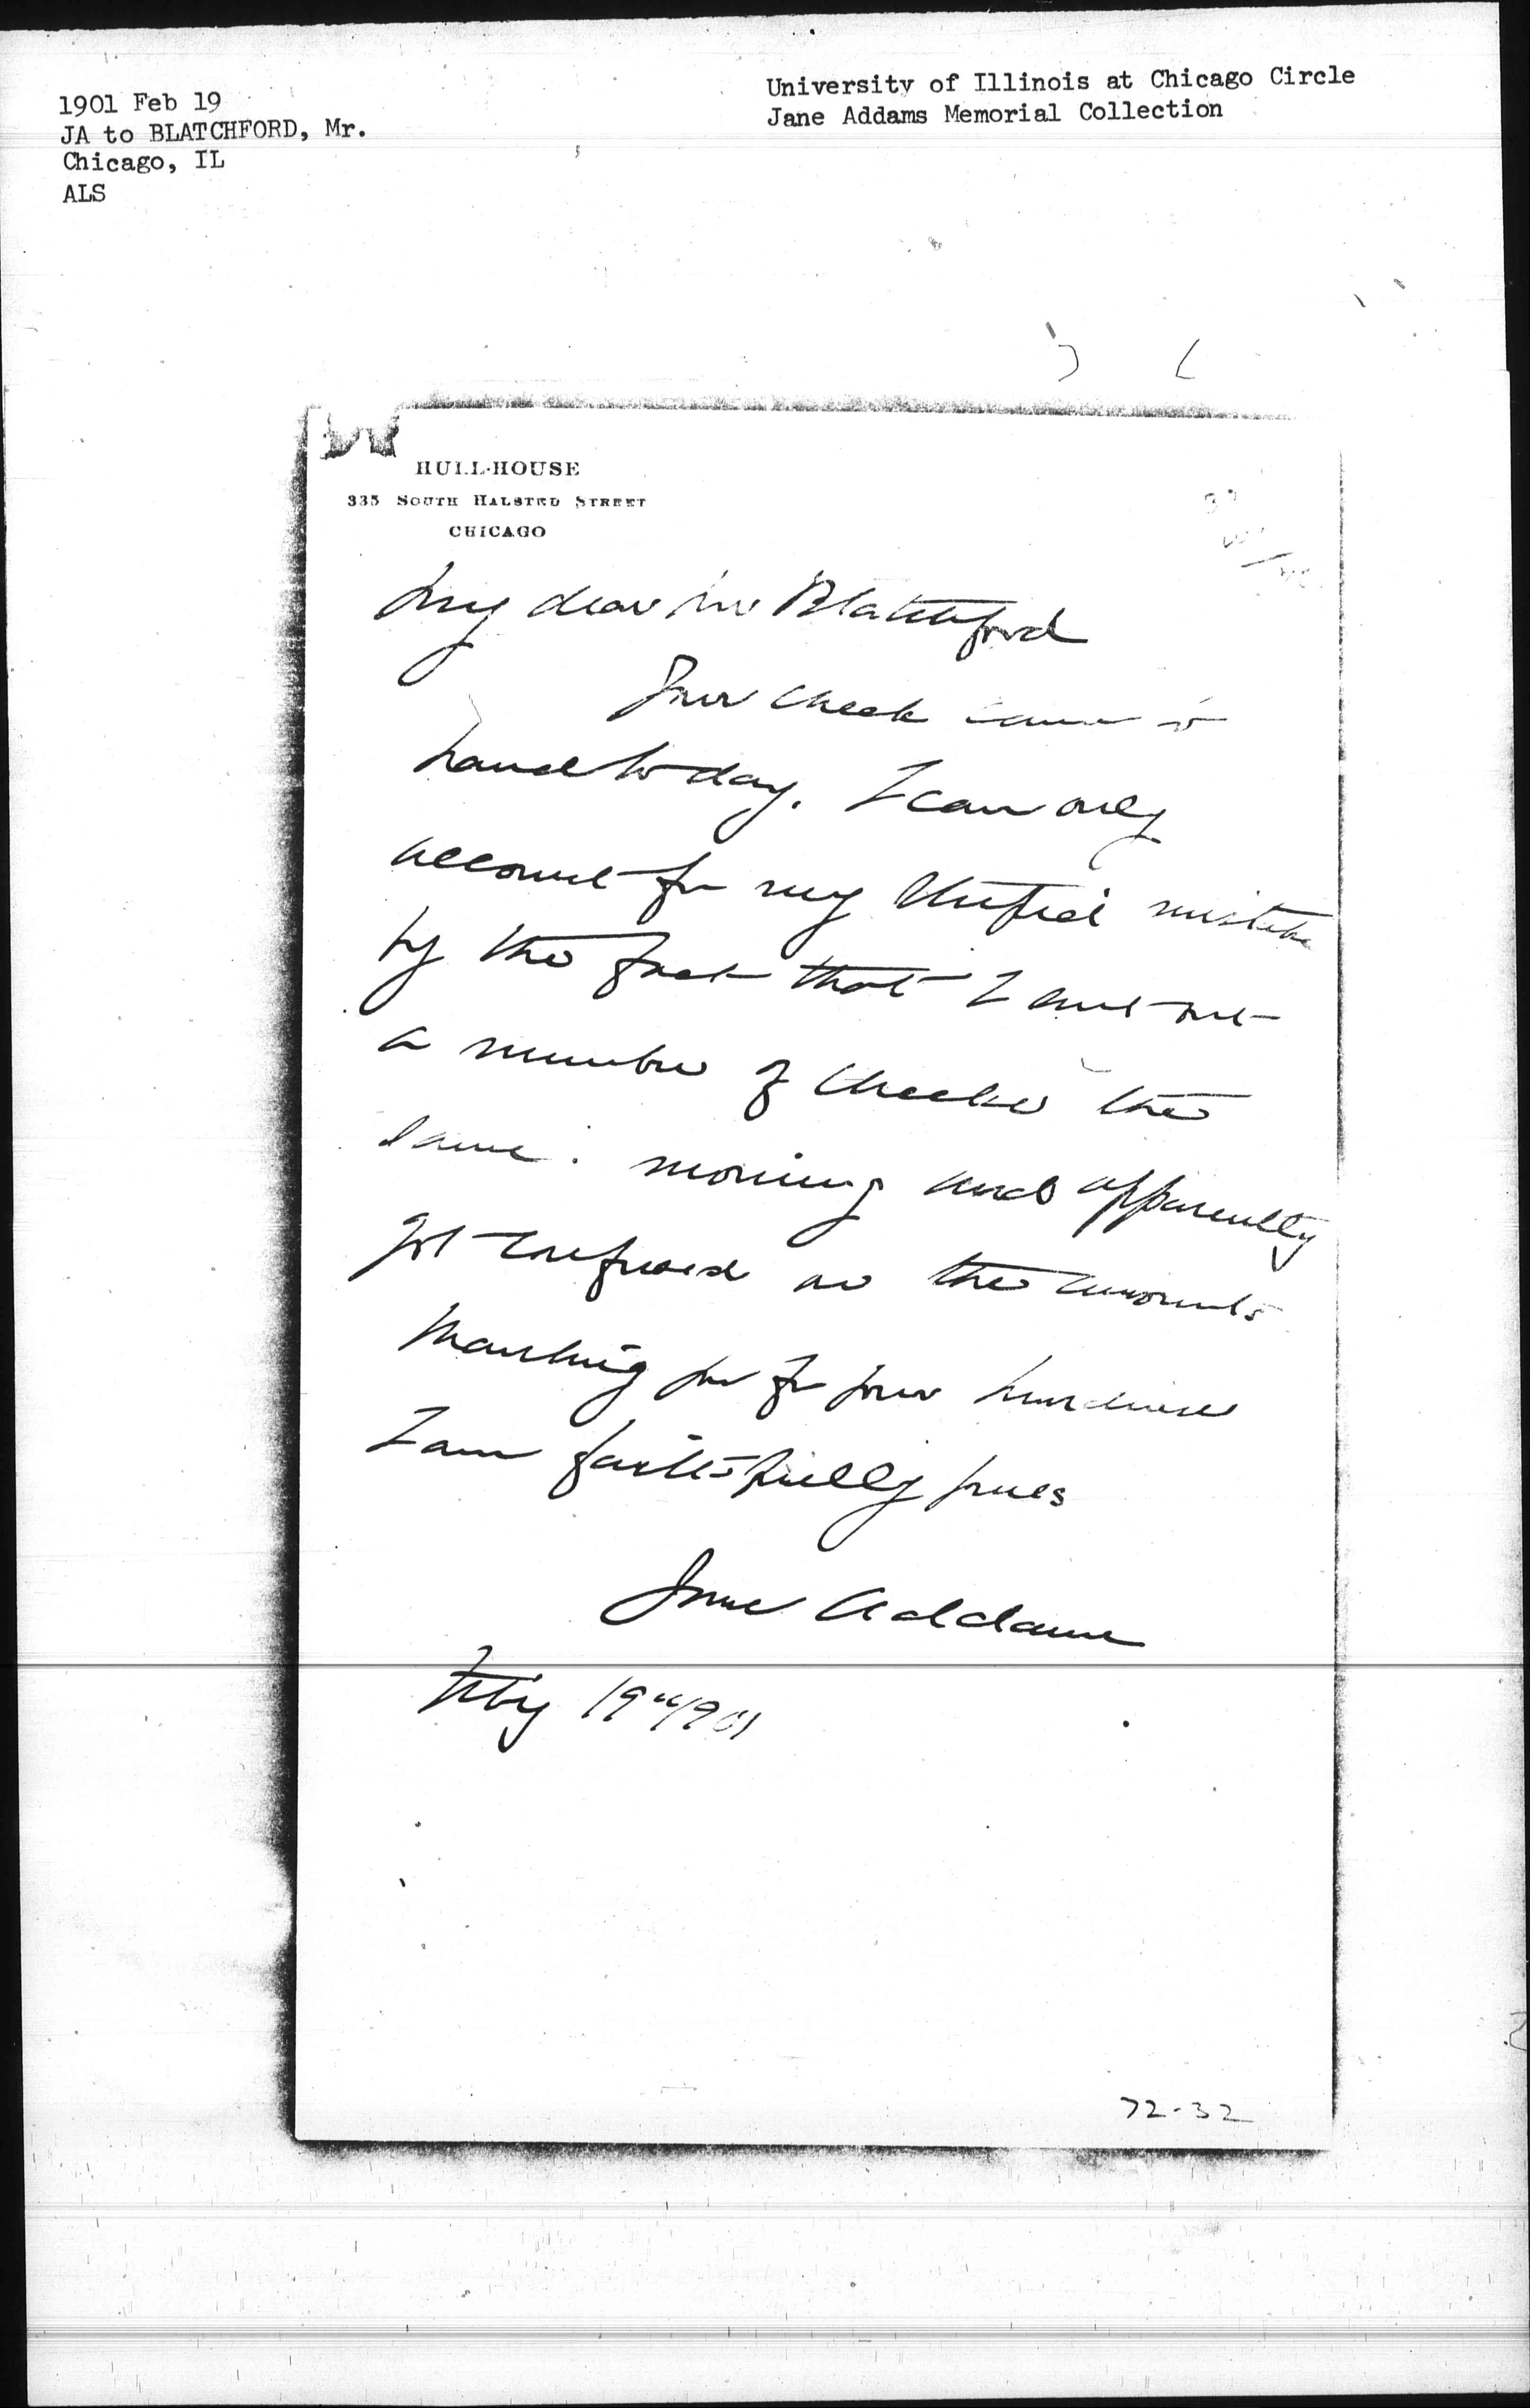 1901 Feb 19
JA to BLATCHFORD, Mr.
Chicago, IL
ALS
University of Illinois at Chicago Circle
Jane Addams Memorial Collection
HULL-HOUSE
335 SOUTH HALSTED STREET
CHICAGO
My dear Mr Blatchford
Your check came to
hand to day. I can only
account for my stupid mistake
by the fact that I sent out
a number of checks the
same morning and apparently
got confused as the amounts
Thanking you for your kindness
I am faithfully yours
Jane Addams
Feb'y 19" 1901
72-32